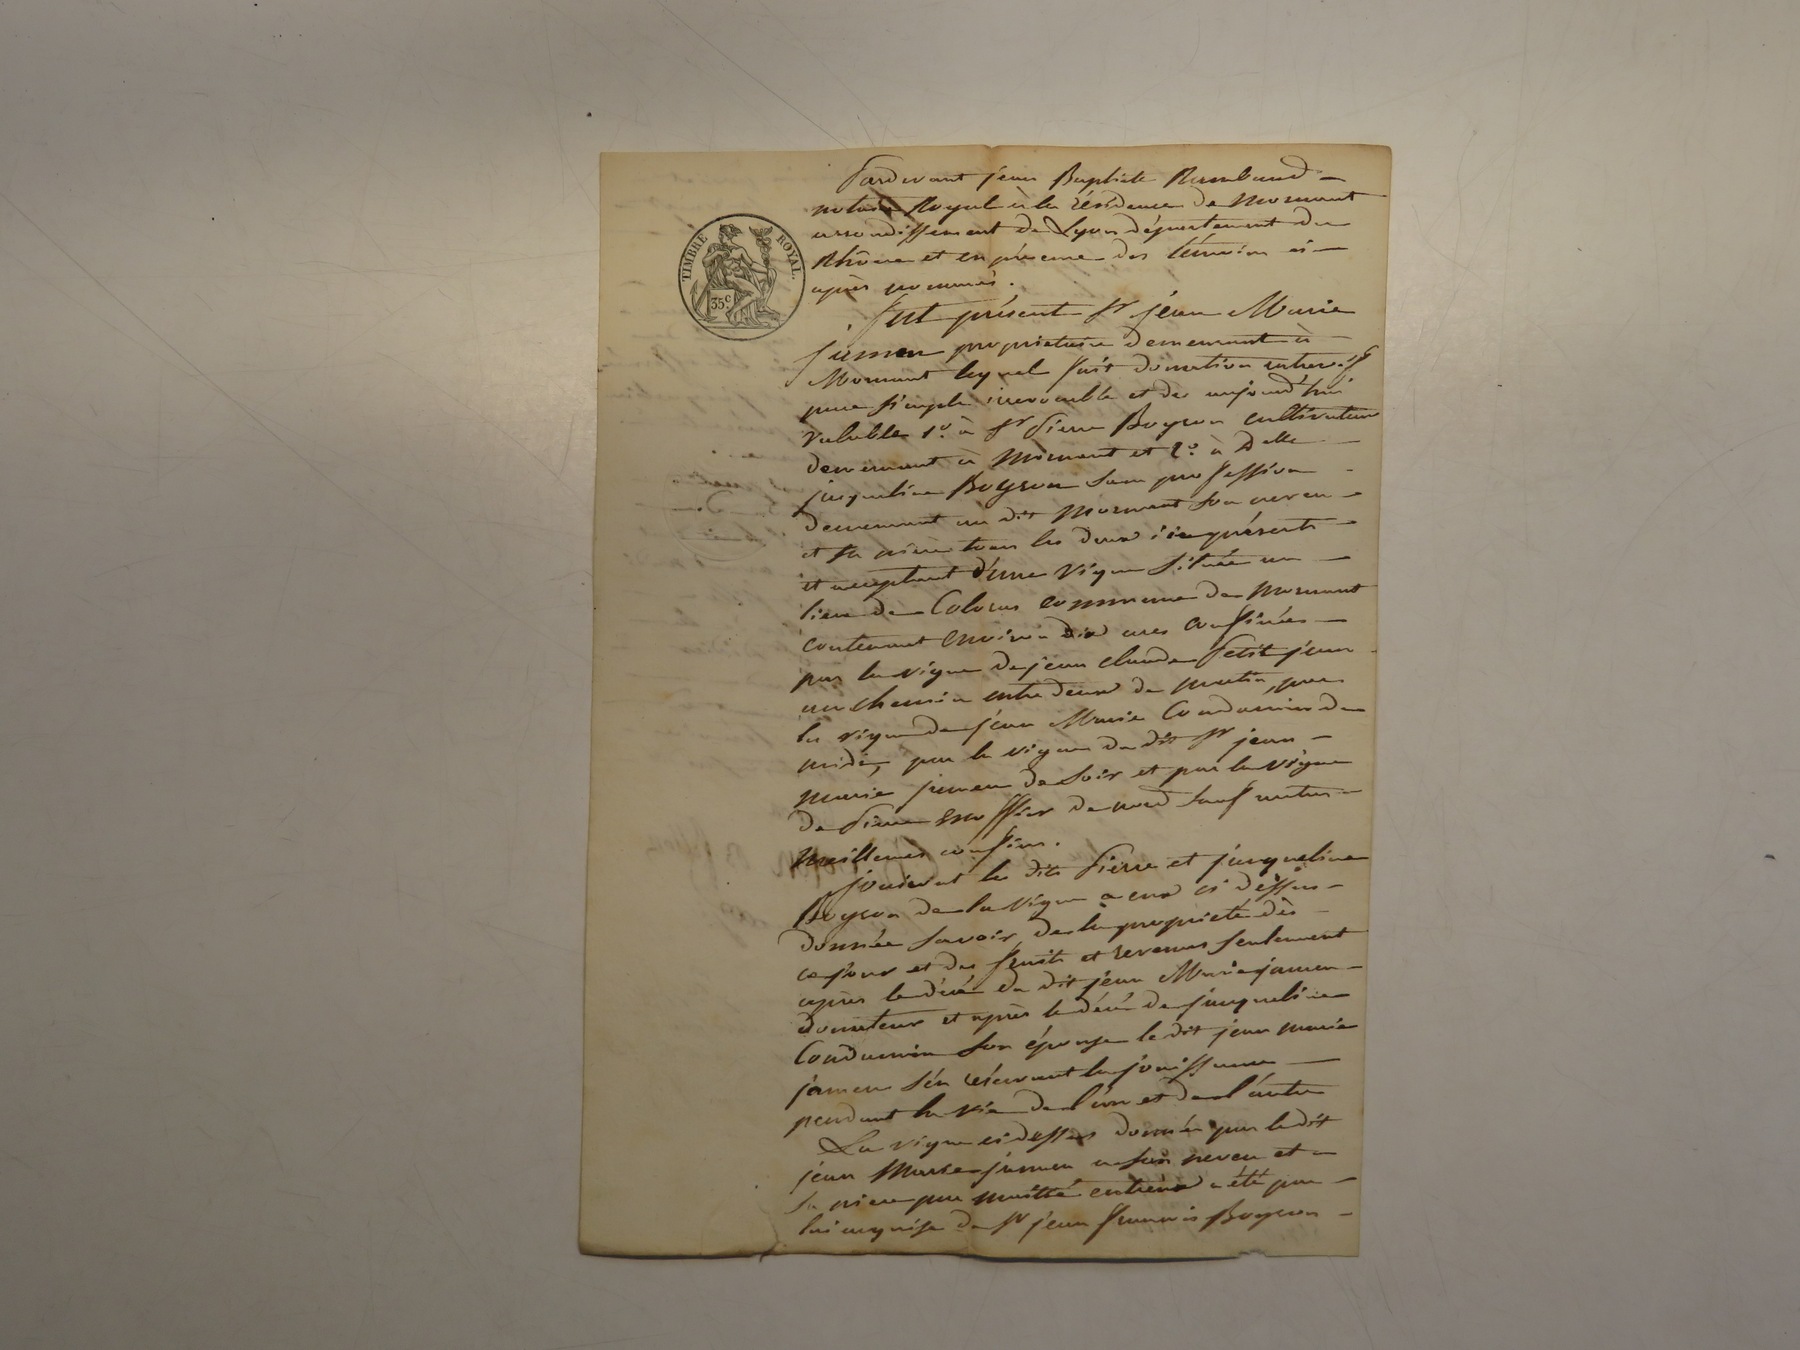 TIMBRE ROYAL.
35c
Pardevant jean Baptiste Rambaud
notaire Royal à la résidence de Mornant
arrondissement de Lyon département du
Rhône et en présence des témoins ci
après nommés.
fut présent Sr jean Marie
jamen propriétaire demeurant à
Mornant lequel fait donation entrevifs
pure simple irrevocable et des aujourd'hui
valable 1º. à Sr Pierre Boyron cultivateur
demeurant à Mornant et 2º. à Delle
jacqueline Boyron sans profession
demeurant au dit Mornant son neveu
et sa nièce tous les deux ici présents
et acceptant d'une vigne située au
lieu de Coloras commune de Mornant
contenant environ dix ares confinées
par la vigne de jean claude Petit jean
un chemin entre deux de matin, par
la vigne de jean Marie Condamin de
midi, par la vigne du dit Sr jean
marie jamen de soir et par la vigne
de Pierre de nord sauf autres
meilleurs confins.
jouiront les dits Pierre et jacqueline
Boyron de la vigne a eux ci dessus
donnée savoir de la propriété dès
ce jour et des fruits et revenus seulement
après le décé du dit jean Marie jamen
donateur et après le décé de jacqueline
Condamin son épouse le dit jean marie
jamen s'en réservant la jouissance
pendant la vie de l'un et de l'autre
La vigne ci dessus donnée par le dit
jean Marie jamen a son neveu et a
sa niece par moitié entreux a été par
lui acquise de Sr jean francois Boyron